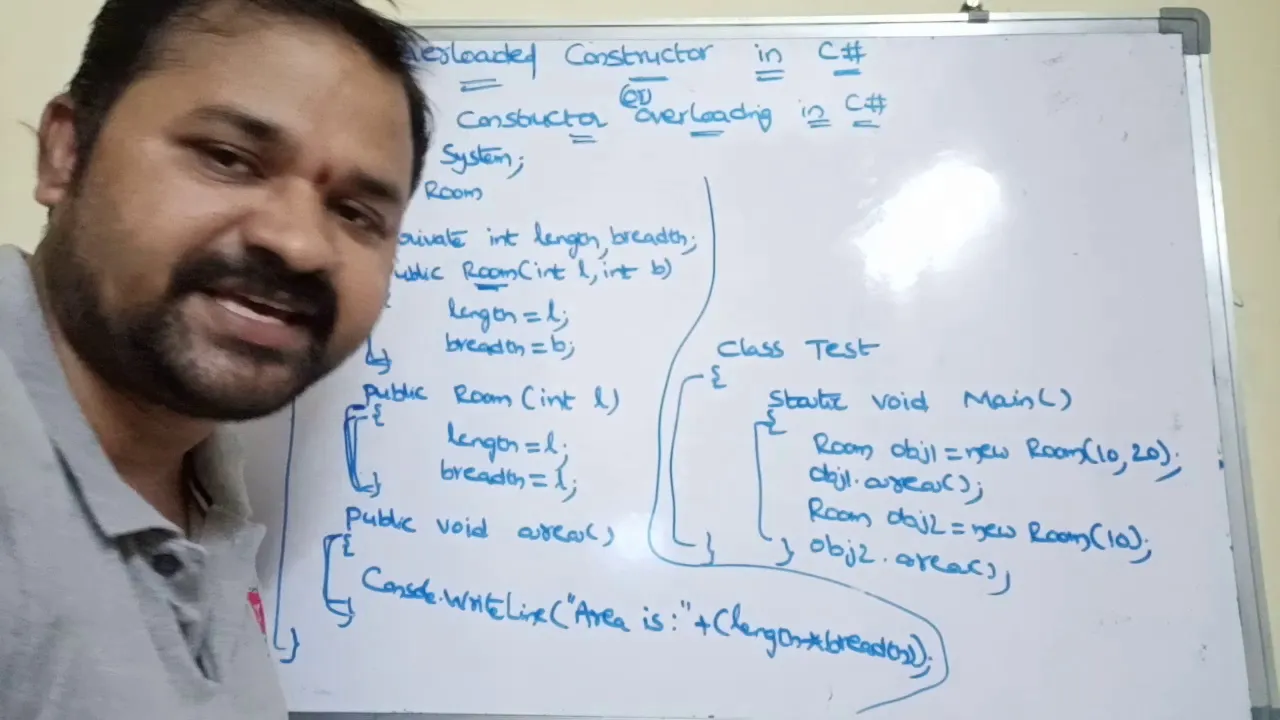 erloaded Constructor in C#
(or)
Constructor overloading in C#
System;
Room
private int length, breadth;
public Room(int l, int b)
{
length = l;
breadth = b;
}
public Room(int l)
{
length = l;
breadth = l;
}
public void area()
{
Console.WriteLine("Area is:" + (length*breadth));
}
}
Class Test
{
static void Main()
{
Room obj1 = new Room(10, 20);
obj1.area();
Room obj2 = new Room(10);
obj2.area();
}
}